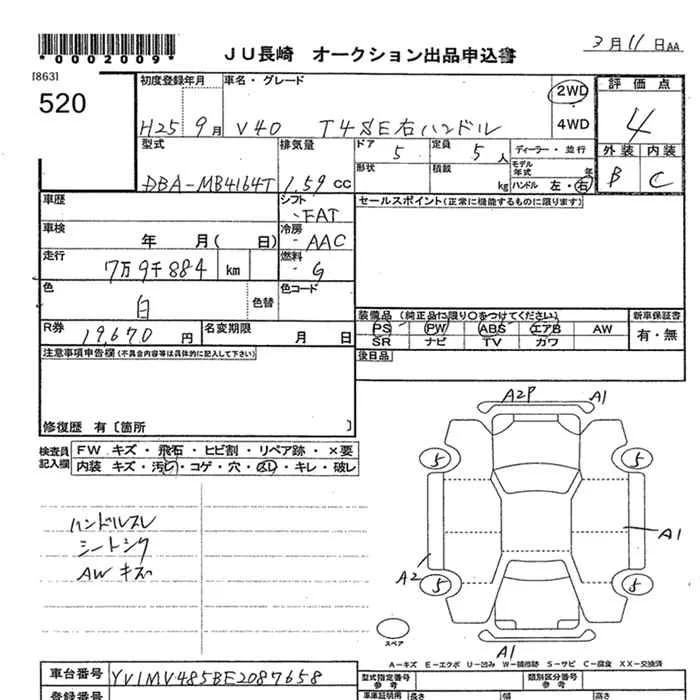 *0002009*
ＪＵ長崎 オークション出品申込書
3月11日AA
[863]
520
初度登録年月 車名・グレード
H25 9月 V40 T4SE右ハンドル
2WD
4WD
評価点
4
外装 内装
B C
型式 排気量
DBA-MB4164T 1.59cc
ドア 5 定員 5人 ディーラー・並行
形状 積載 kg モデル年式 年
ハンドル 左・右
車歴
シフト FAT
セールスポイント(正常に機能するものに限ります)
車検 年 月( 日)
冷房 AAC
走行 7万9千884 km
燃料 G
色 白 色替 色コード
R券 19,670円 名変期限 月 日
装備品(純正品に限り○をつけてください) 新車保証書
PS PW ABS エアB AW
SR ナビ TV カワ
有・無
注意事項申告欄(不具合内容等は具体的に記入して下さい)
後日品
修復歴 有〔箇所 〕
検査員記入欄
FW キズ・飛石・ヒビ割・リペア跡・×要
内装 キズ・汚レ・コゲ・穴・スレ・キレ・破レ
ハンドルスレ
シートシワ
AWキズ
A2P A1
5 5
A1
A2
5 5
スペア
A1
A-キズ E-エクボ U-凹み W-補修跡 S-サビ C-腐食 XX-交換済
車台番号 YV1MV485BE2087658
型式指定番号 参考 類別区分番号 参考
登録番号
車庫証明用 長さ 幅 高さ